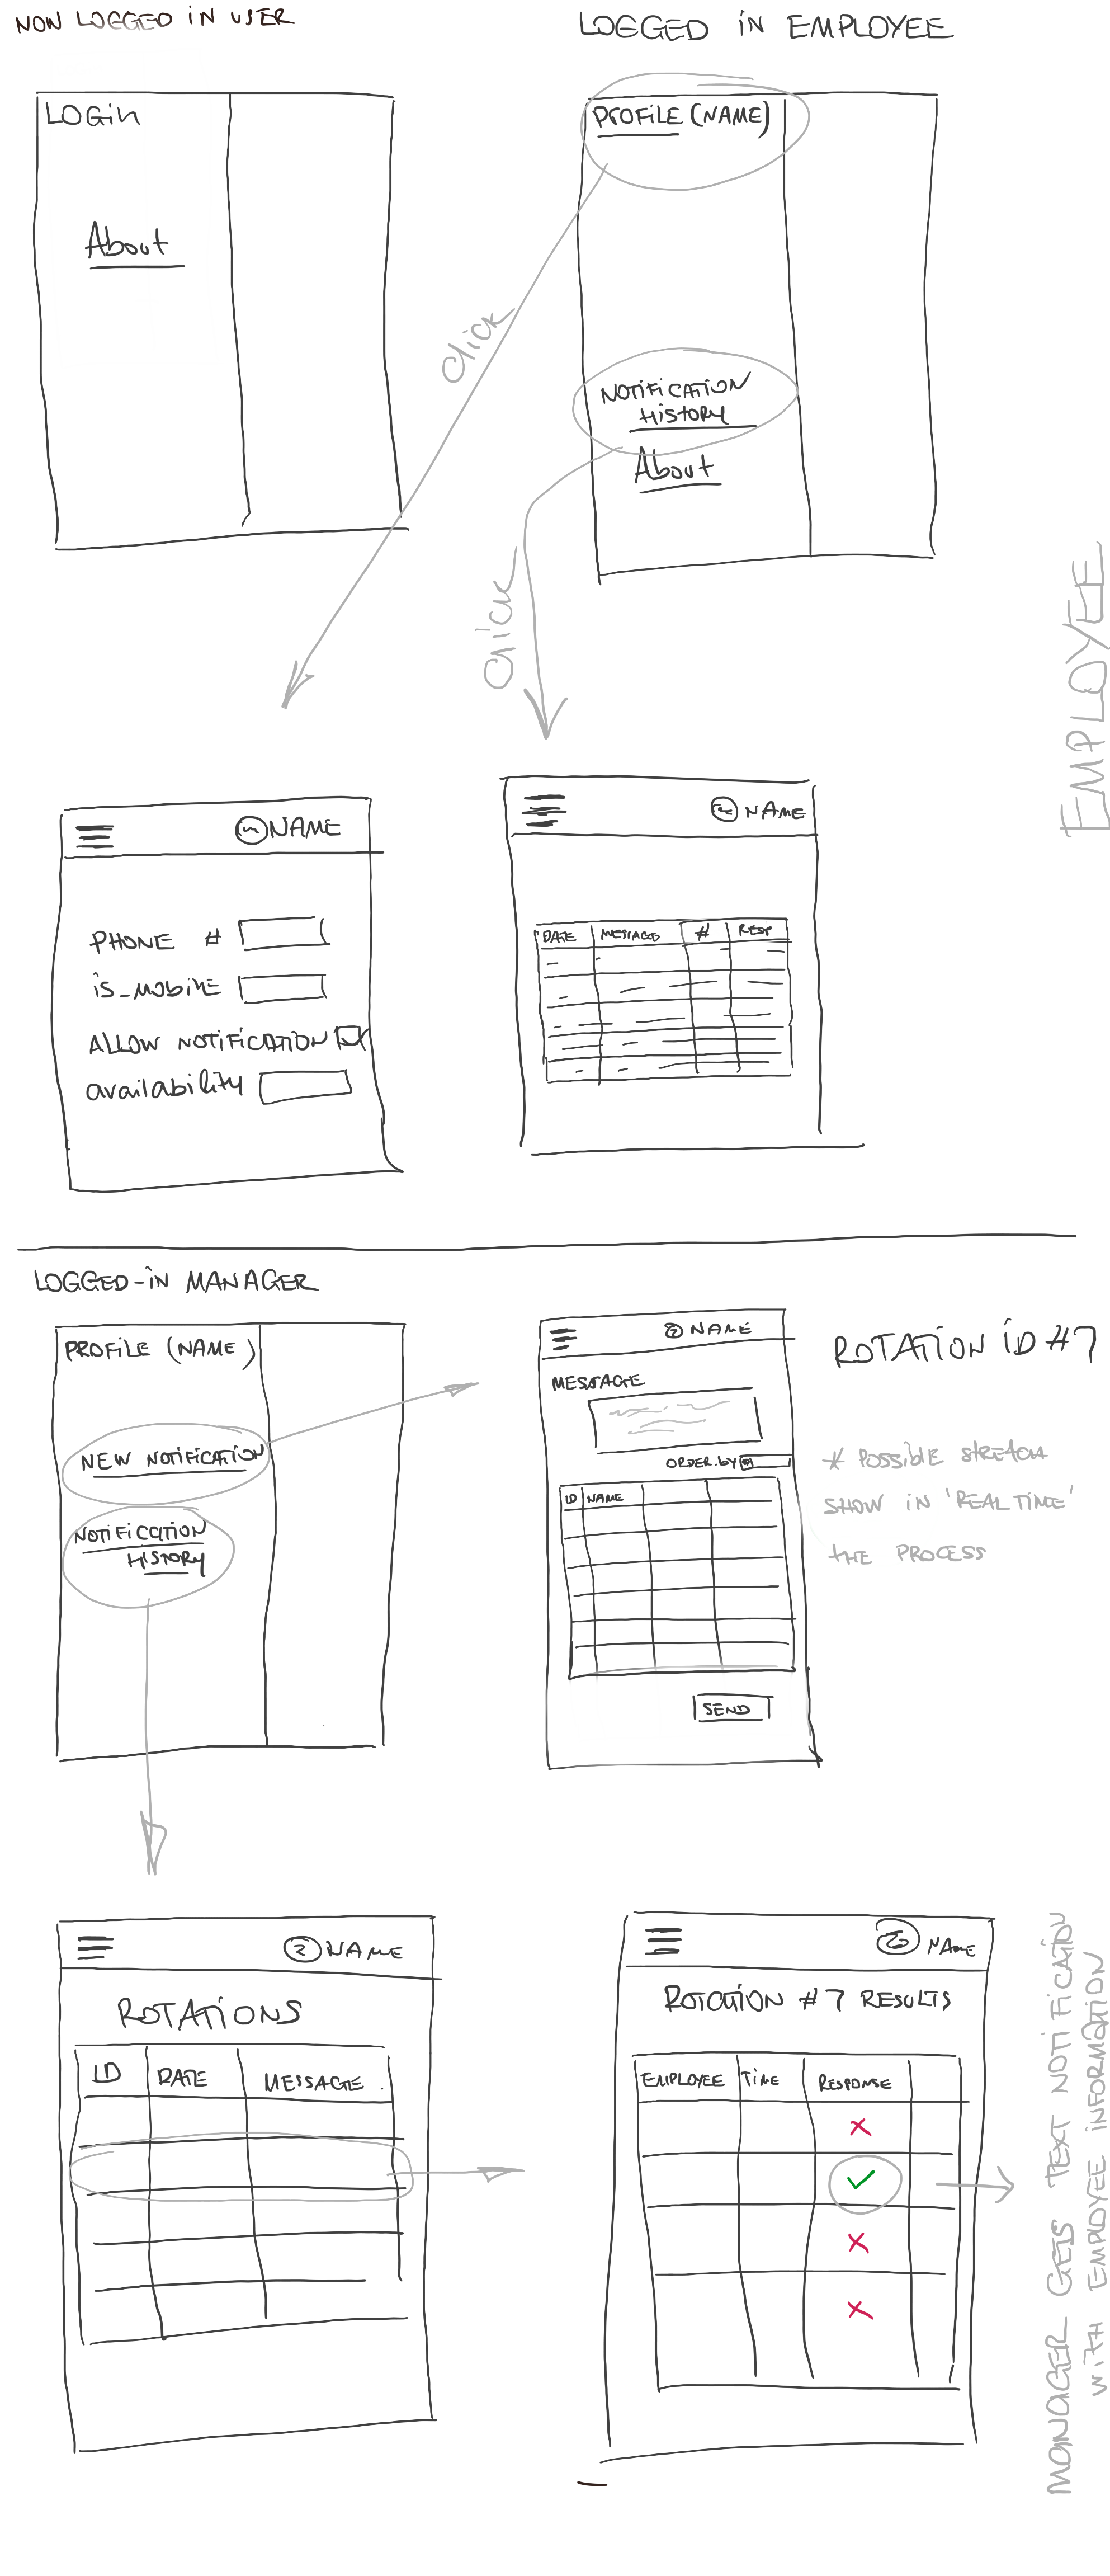 NON LOGGED iN USER
LOGGED iN EMPLOYEE
LOGiN
About
PROFiLE (NAME)
NOTiFiCATiON
HiSTORY
About
Click
Click
EMPLOYEE
NAME
PHONE #
iS_MOBiLE
ALLOW NOTiFiCATiON
availability
NAME
DATE MESSAGE # RESP
LOGGED-iN MANAGER
PROFiLE (NAME)
NEW NOTiFiCATiON
NOTiFiCATiON
HiSTORY
NAME
MESSAGE
ORDER.by
ID NAME
SEND
ROTATiON iD #7
* POSSible STRETCH
SHOW IN 'REAL TIME'
tHE PROCESS
NAME
ROTATiONS
ID DATE MESSAGE
NAME
ROTATION #7 RESULTS
EMPLOYEE TiME RESPONSE
MANAGER GETS TEXT NOTiFiCATiON
WiTH EMPLOYEE INFORMATION